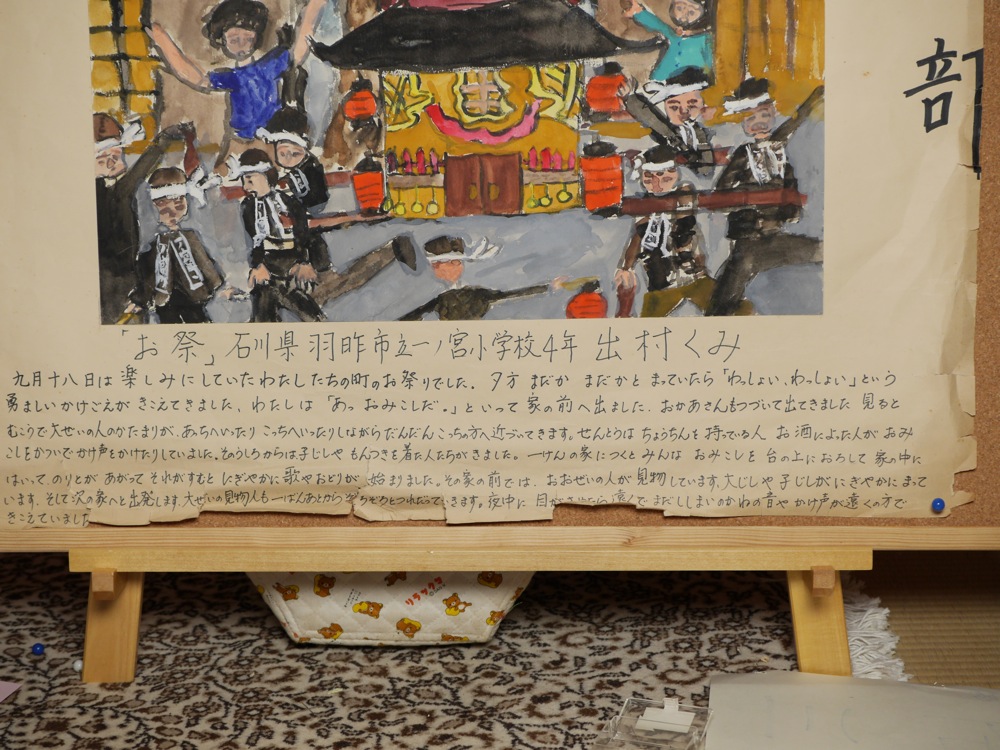 部
「お祭」石川県羽咋市立一ノ宮小学校4年 出村くみ
九月十八日は楽しみにしていたわたしたちの町のお祭りでした。夕方 まだか まだかと まっていたら「わっしょい、わっしょい」という
勇ましいかけごえが きこえてきました、わたしは「あっ おみこしだ。」といって 家の前へ出ました。おかあさんもつづいて出てきました 見ると
むこうで大ぜいの人のかたまりが、あっちへいったり こっちへいったりしながらだんだん こっちの方へ近づいてきます。せんとうは ちょうちんを 持っている人 お酒によった人が おみ
こしをかついでかけ声をかけたりしていました。そのうしろからは子じしや もんつきを着た人たちがきました。一けんの家につくと みんは おみこしを 台の上におろして 家の中に
はいって、のりとが あがって それがすむと にぎやかに 歌やおどりが 始まりました。その家の前では、おおぜいの人が見物しています、大じしや 子じしが にぎやかに まって
います、そして次の家へと出発します、大ぜいの見物人も一ばんあとから ぞろぞろとつれだって いきます。夜中に 目がさめたら 遠くで まだ ししまいのかねの音や かけ声が遠くの方で
きこえていました
リラックマ